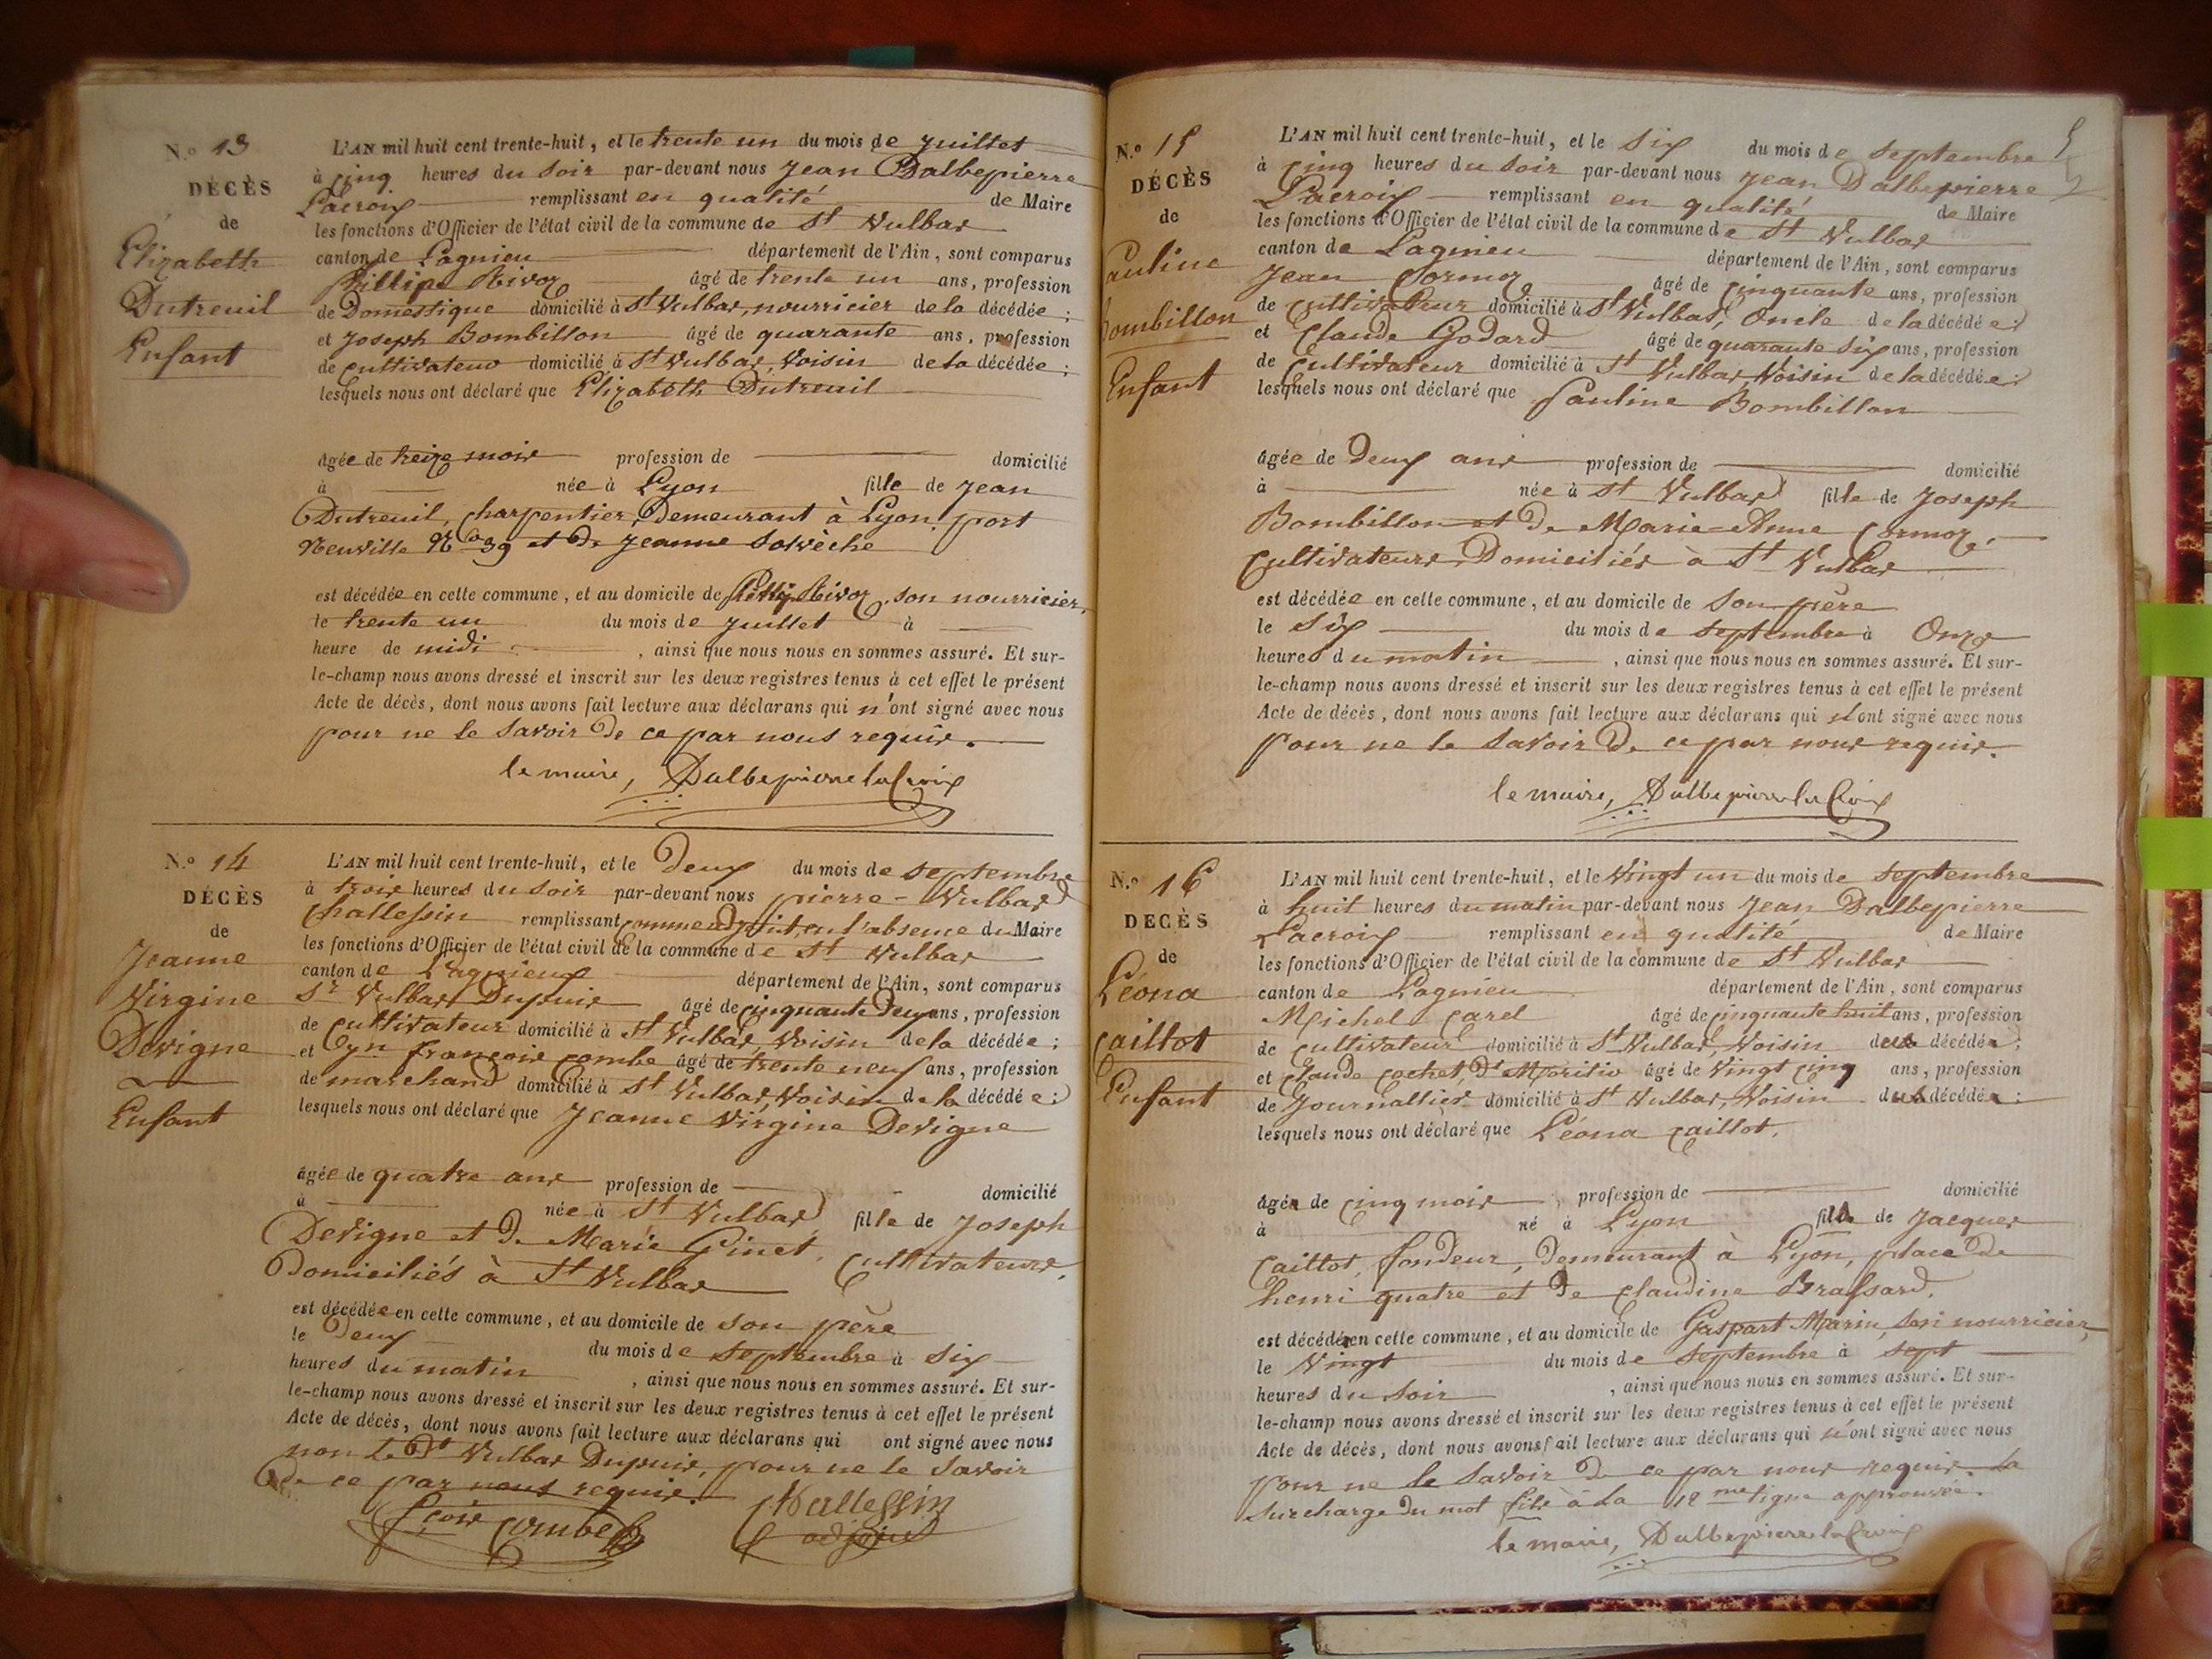 N.o 13
DÉCÈS
de
Elizabeth
Dutreuil
Enfant
L'AN mil huit cent trente-huit, et le trente un du mois de Juillet
à cinq heures du soir par-devant nous Jean Dalbepierre
Lacroix remplissant en qualité de Maire
les fonctions d'Officier de l'état civil de la commune de St Vulbas
canton de Lagnieu département de l'Ain, sont comparus
Phillipe Rivoz âgé de trente un ans, profession
de Domestique domicilié à St Vulbas, nourricier de la décédée ;
et Joseph Bombillon âgé de quarante ans, profession
de cultivateur domicilié à St Vulbas, Voisin de la décédée ;
lesquels nous ont déclaré que Elizabeth Dutreuil
âgée de treize mois profession de domicilié
à née à Lyon fille de Jean
Dutreuil, charpentier, Demeurant à Lyon, port
Neuville No 39 et de Jeanne
est décédée en cette commune, et au domicile de Rivoz, son nourricier,
le trente un du mois de Juillet à
heure de midi , ainsi que nous nous en sommes assuré. Et sur-
le-champ nous avons dressé et inscrit sur les deux registres tenus à cet effet le présent
Acte de décès, dont nous avons fait lecture aux déclarans qui n'ont signé avec nous
pour ne le savoir De ce par nous requis.
le maire, Dalbepierre laCroix
N.o 14
DÉCÈS
de
Jeanne
Virgine
Devigne
Enfant
L'AN mil huit cent trente-huit, et le Deux du mois de septembre
à trois heures du soir par-devant nous pierre-Vulbas
Challessin remplissant comme adjoint, en l'absence du Maire
les fonctions d'Officier de l'état civil de la commune de St Vulbas
canton de Lagnieux département de l'Ain, sont comparus
Sr Vulbas Dupuis âgé de cinquante Deux ans, profession
de cultivateur domicilié à St Vulbas, Voisin de la décédée ;
et françois Combe âgé de trente neuf ans, profession
de marchand domicilié à St Vulbas, Voisin de la décédée ;
lesquels nous ont déclaré que Jeanne Virgine Devigne
âgée de quatre ans profession de domicilié
à née à St Vulbas fille de Joseph
Devigne et De Marie Ginet, Cultivateurs,
Domiciliés à St Vulbas
est décédée en cette commune, et au domicile de son père
le Deux du mois de septembre à six
heures du matin , ainsi que nous nous en sommes assuré. Et sur-
le-champ nous avons dressé et inscrit sur les deux registres tenus à cet effet le présent
Acte de décès, dont nous avons fait lecture aux déclarans qui ont signé avec nous
non le Dt Vulbas Dupuis, pour ne le savoir
De ce par nous requis.
fçois Combe Challessin
adjoint
N.o 15
DÉCÈS
de
Pauline
Bombillon
Enfant
5
L'AN mil huit cent trente-huit, et le Six du mois de septembre
à cinq heures du soir par-devant nous Jean Dalbepierre
Lacroix remplissant en qualité de Maire
les fonctions d'Officier de l'état civil de la commune de St Vulbas
canton de Lagnieu département de l'Ain, sont comparus
Jean Cormoz âgé de cinquante ans, profession
de cultivateur domicilié à St Vulbas, Oncle de la décédée ;
et Claude Godard âgé de quarante six ans, profession
de Cultivateur domicilié à St Vulbas, Voisin de la décédée ;
lesquels nous ont déclaré que Pauline Bombillon
âgée de Deux ans profession de domicilié
à née à St Vulbas fille de Joseph
Bombillon et De Marie-Anne Cormoz,
Cultivateurs Domiciliés à St Vulbas
est décédée en cette commune, et au domicile de son père
le Six du mois de septembre à Onze
heures du matin , ainsi que nous nous en sommes assuré. Et sur-
le-champ nous avons dressé et inscrit sur les deux registres tenus à cet effet le présent
Acte de décès, dont nous avons fait lecture aux déclarans qui n'ont signé avec nous
pour ne le savoir De ce par nous requis.
le maire, Dalbepierre la Croix
N.o 16
DECÈS
de
Léona
Caillot
Enfant
L'AN mil huit cent trente-huit, et le Vingt un du mois de septembre
à huit heures du matin par-devant nous Jean Dalbepierre
Lacroix remplissant en qualité de Maire
les fonctions d'Officier de l'état civil de la commune de St Vulbas
canton de Lagnieu département de l'Ain, sont comparus
Michel Carel âgé de cinquante huit ans, profession
de cultivateur domicilié à St Vulbas, Voisin du décédé ;
et Claude Cochet, Dt âgé de Vingt cinq ans, profession
de Journallier domicilié à St Vulbas, Voisin du décédé ;
lesquels nous ont déclaré que Léona Caillot,
âgé de cinq mois, profession de domicilié
à né à Lyon fils de Jacques
Caillot, fondeur, Demeurant à Lyon, place De
henri quatre et De Claudine Brassard,
est décédé en cette commune, et au domicile de Gaspart Marin, son nourricier,
le Vingt du mois de septembre à sept
heures du soir , ainsi que nous nous en sommes assuré. Et sur-
le-champ nous avons dressé et inscrit sur les deux registres tenus à cet effet le présent
Acte de décès, dont nous avons fait lecture aux déclarans qui n'ont signé avec nous
pour ne le savoir De ce par nous requis. La
surcharge Du mot fils à la 12me ligne approuvée.
le maire, Dalbepierre la Croix